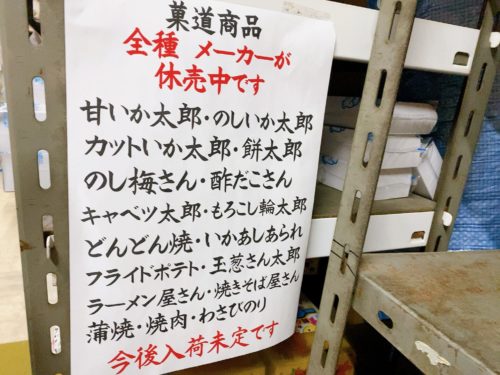 菓道商品
全種 メーカーが
休売中です
甘いか太郎・のしいか太郎
カットいか太郎・餅太郎
のし梅さん・酢だこさん
キャベツ太郎・もろこし輪太郎
どんどん焼・いかあしあられ
フライドポテト・玉葱さん太郎
ラーメン屋さん・焼きそば屋さん
蒲焼・焼肉・わさびのり
今後入荷未定です